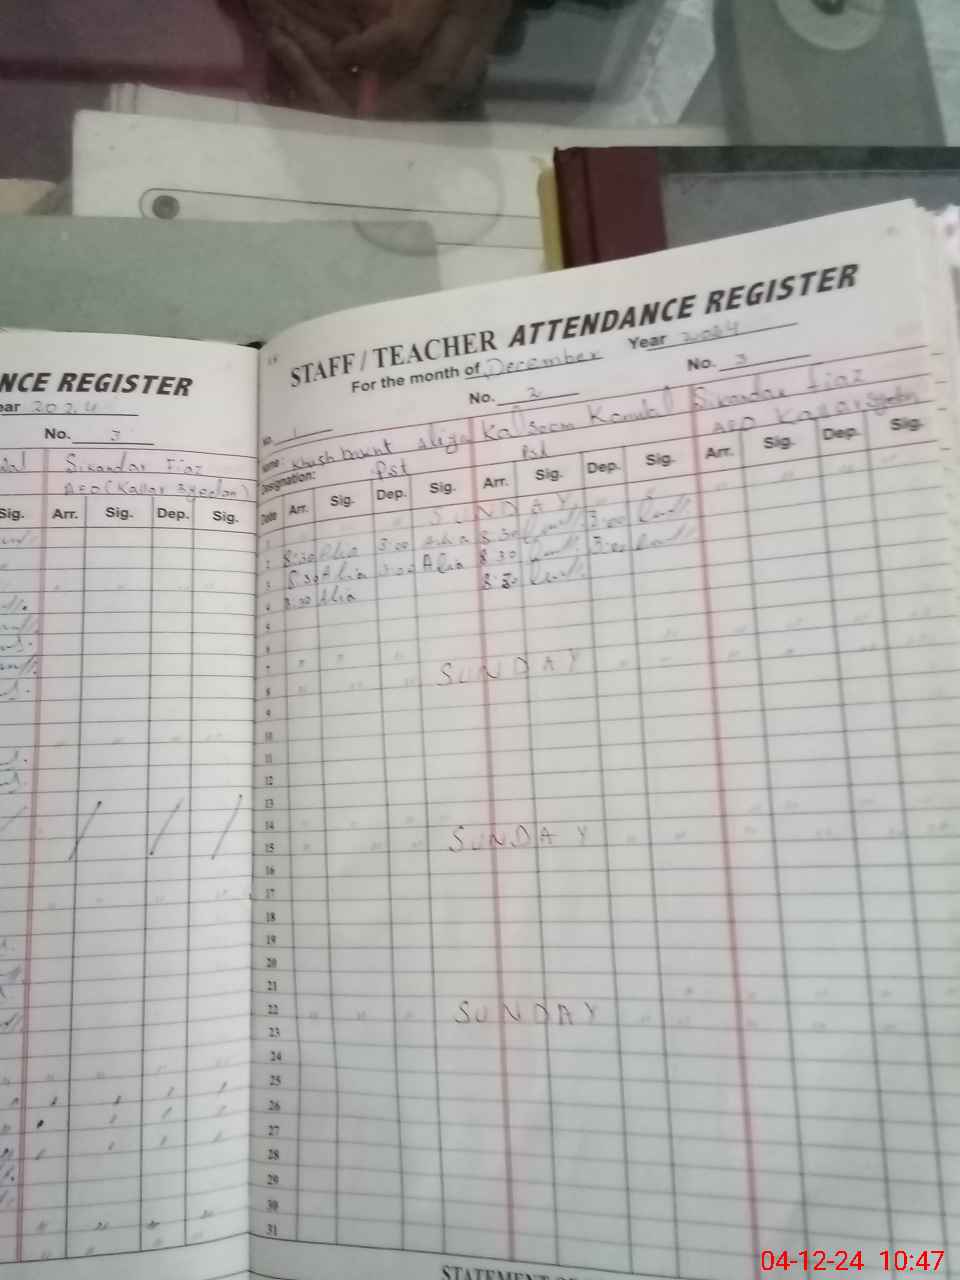 NCE REGISTER
ear 2024
No. 3
Sikandar Fiaz
AEO (Kallar Syedan)
Sig. Arr. Sig. Dep. Sig.
STAFF / TEACHER ATTENDANCE REGISTER
For the month of December Year 2024
No. 1 No. 2 No. 3
Name: Khush bakht Aliya Kalsoom Kanwal Sikandar Fiaz
Designation: Pst Pst AEO Kallar Syedan
Date Arr. Sig. Dep. Sig. Arr. Sig. Dep. Sig. Arr. Sig. Dep. Sig.
1 SUNDAY
2 8:30 Alia 3:00 Alia 8:30 3:00
3 8:30 Alia 3:00 Alia 8:30 3:00
4 8:30 Alia 8:30
5
6
7
8 SUNDAY
9
10
11
12
13
14
15 SUNDAY
16
17
18
19
20
21
22 SUNDAY
23
24
25
26
27
28
29
30
31
STATEMENT
04-12-24 10:47